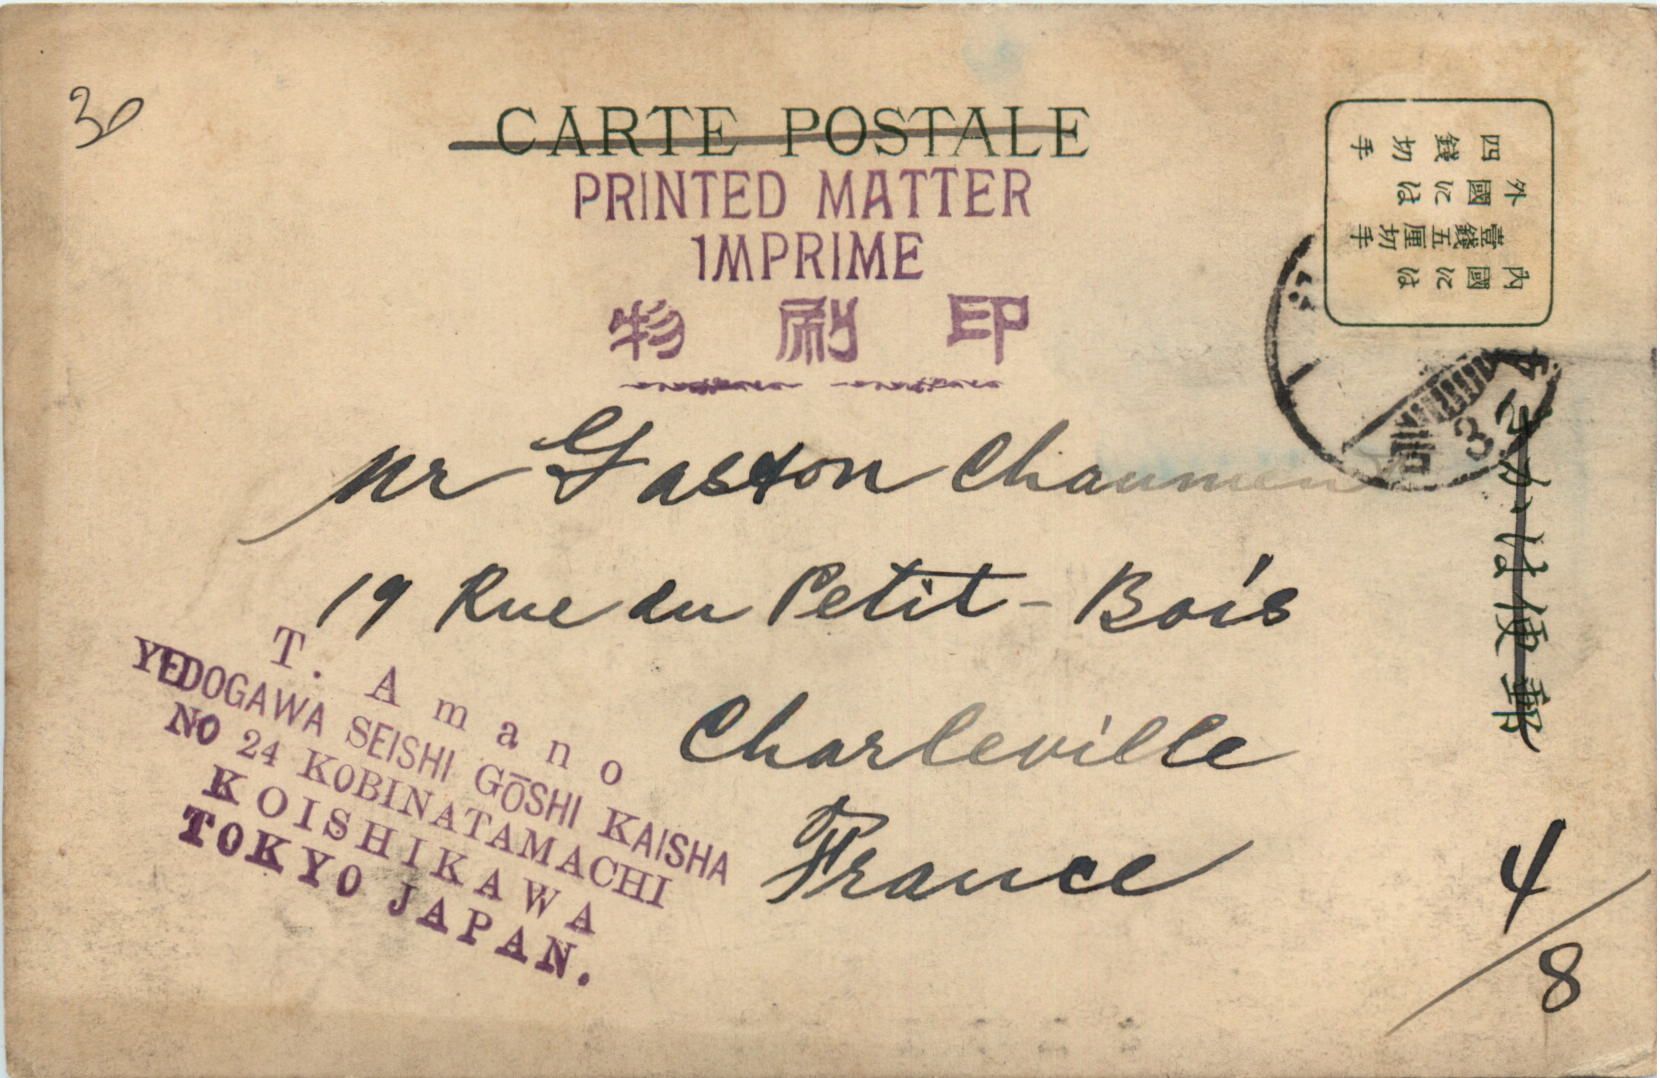 30
CARTE POSTALE
PRINTED MATTER
IMPRIME
印刷物
內國には
壹錢五厘切手
外國には
四錢切手
郵便はかき
Mr Gaston
19 Rue du Petit-Bois
Charleville
France
T. Amano
YEDOGAWA SEISHI GŌSHI KAISHA
NO 24 KOBINATAMACHI
KOISHIKAWA
TOKYO JAPAN.
4/8